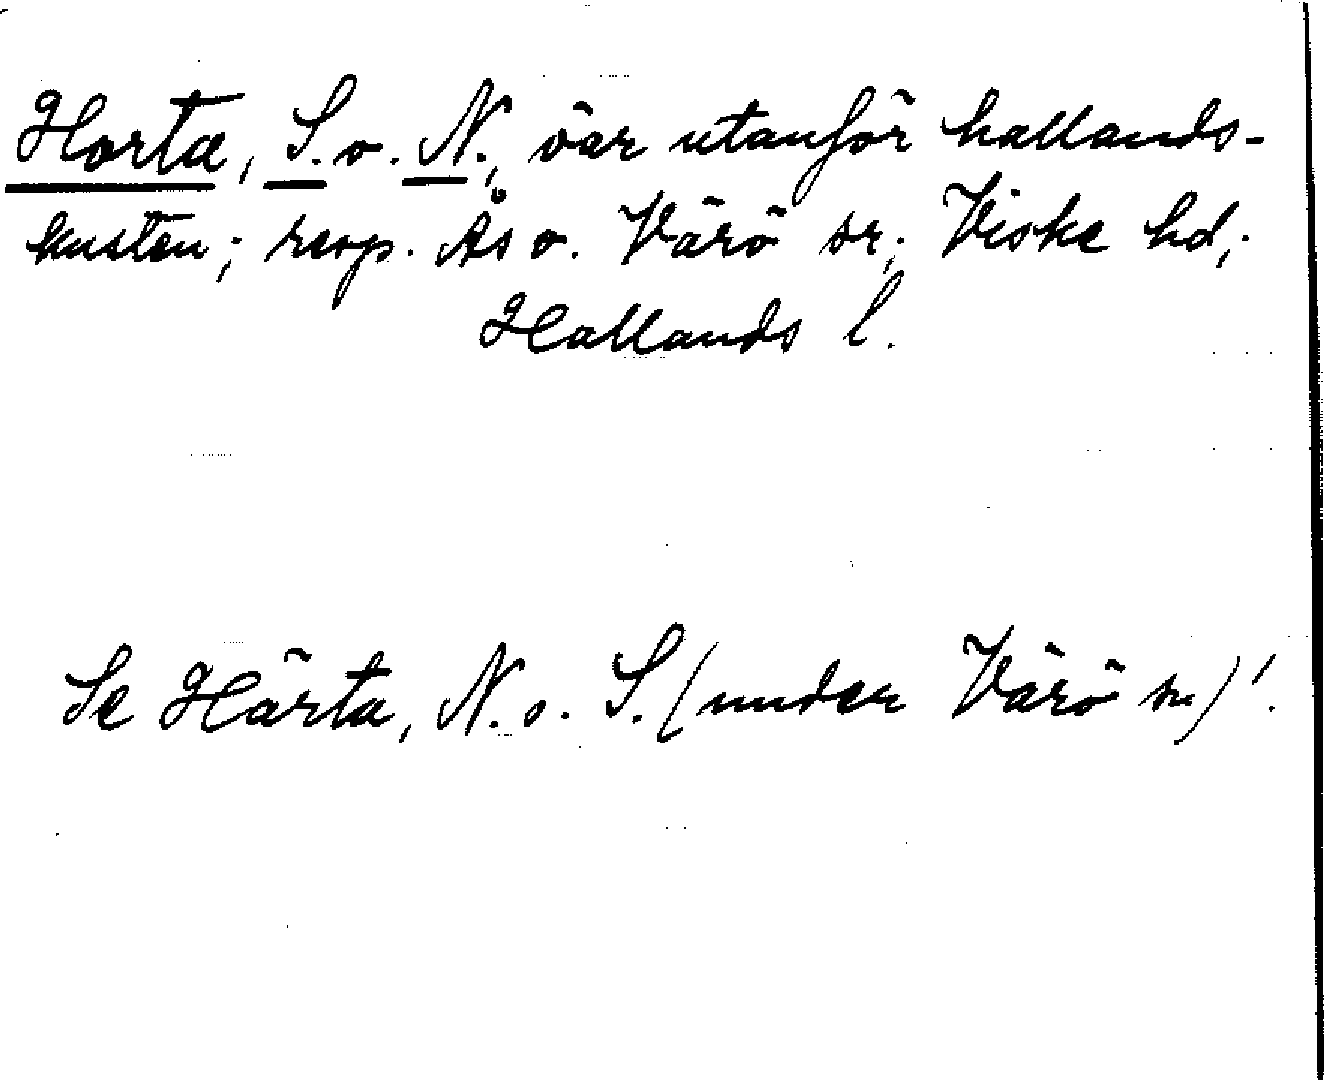 Horta, S. o. N., öar utanför hallands-
kusten; resp. Ås o. Värö sr; Viske hd;
Hallands l.
Se Härta, N. o. S. (under Värö sn)!